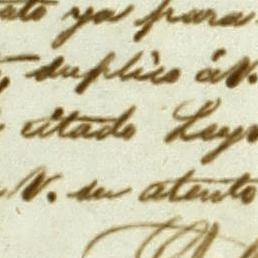 ato ya para
suplico á V.
citado Leyv
V. su atento